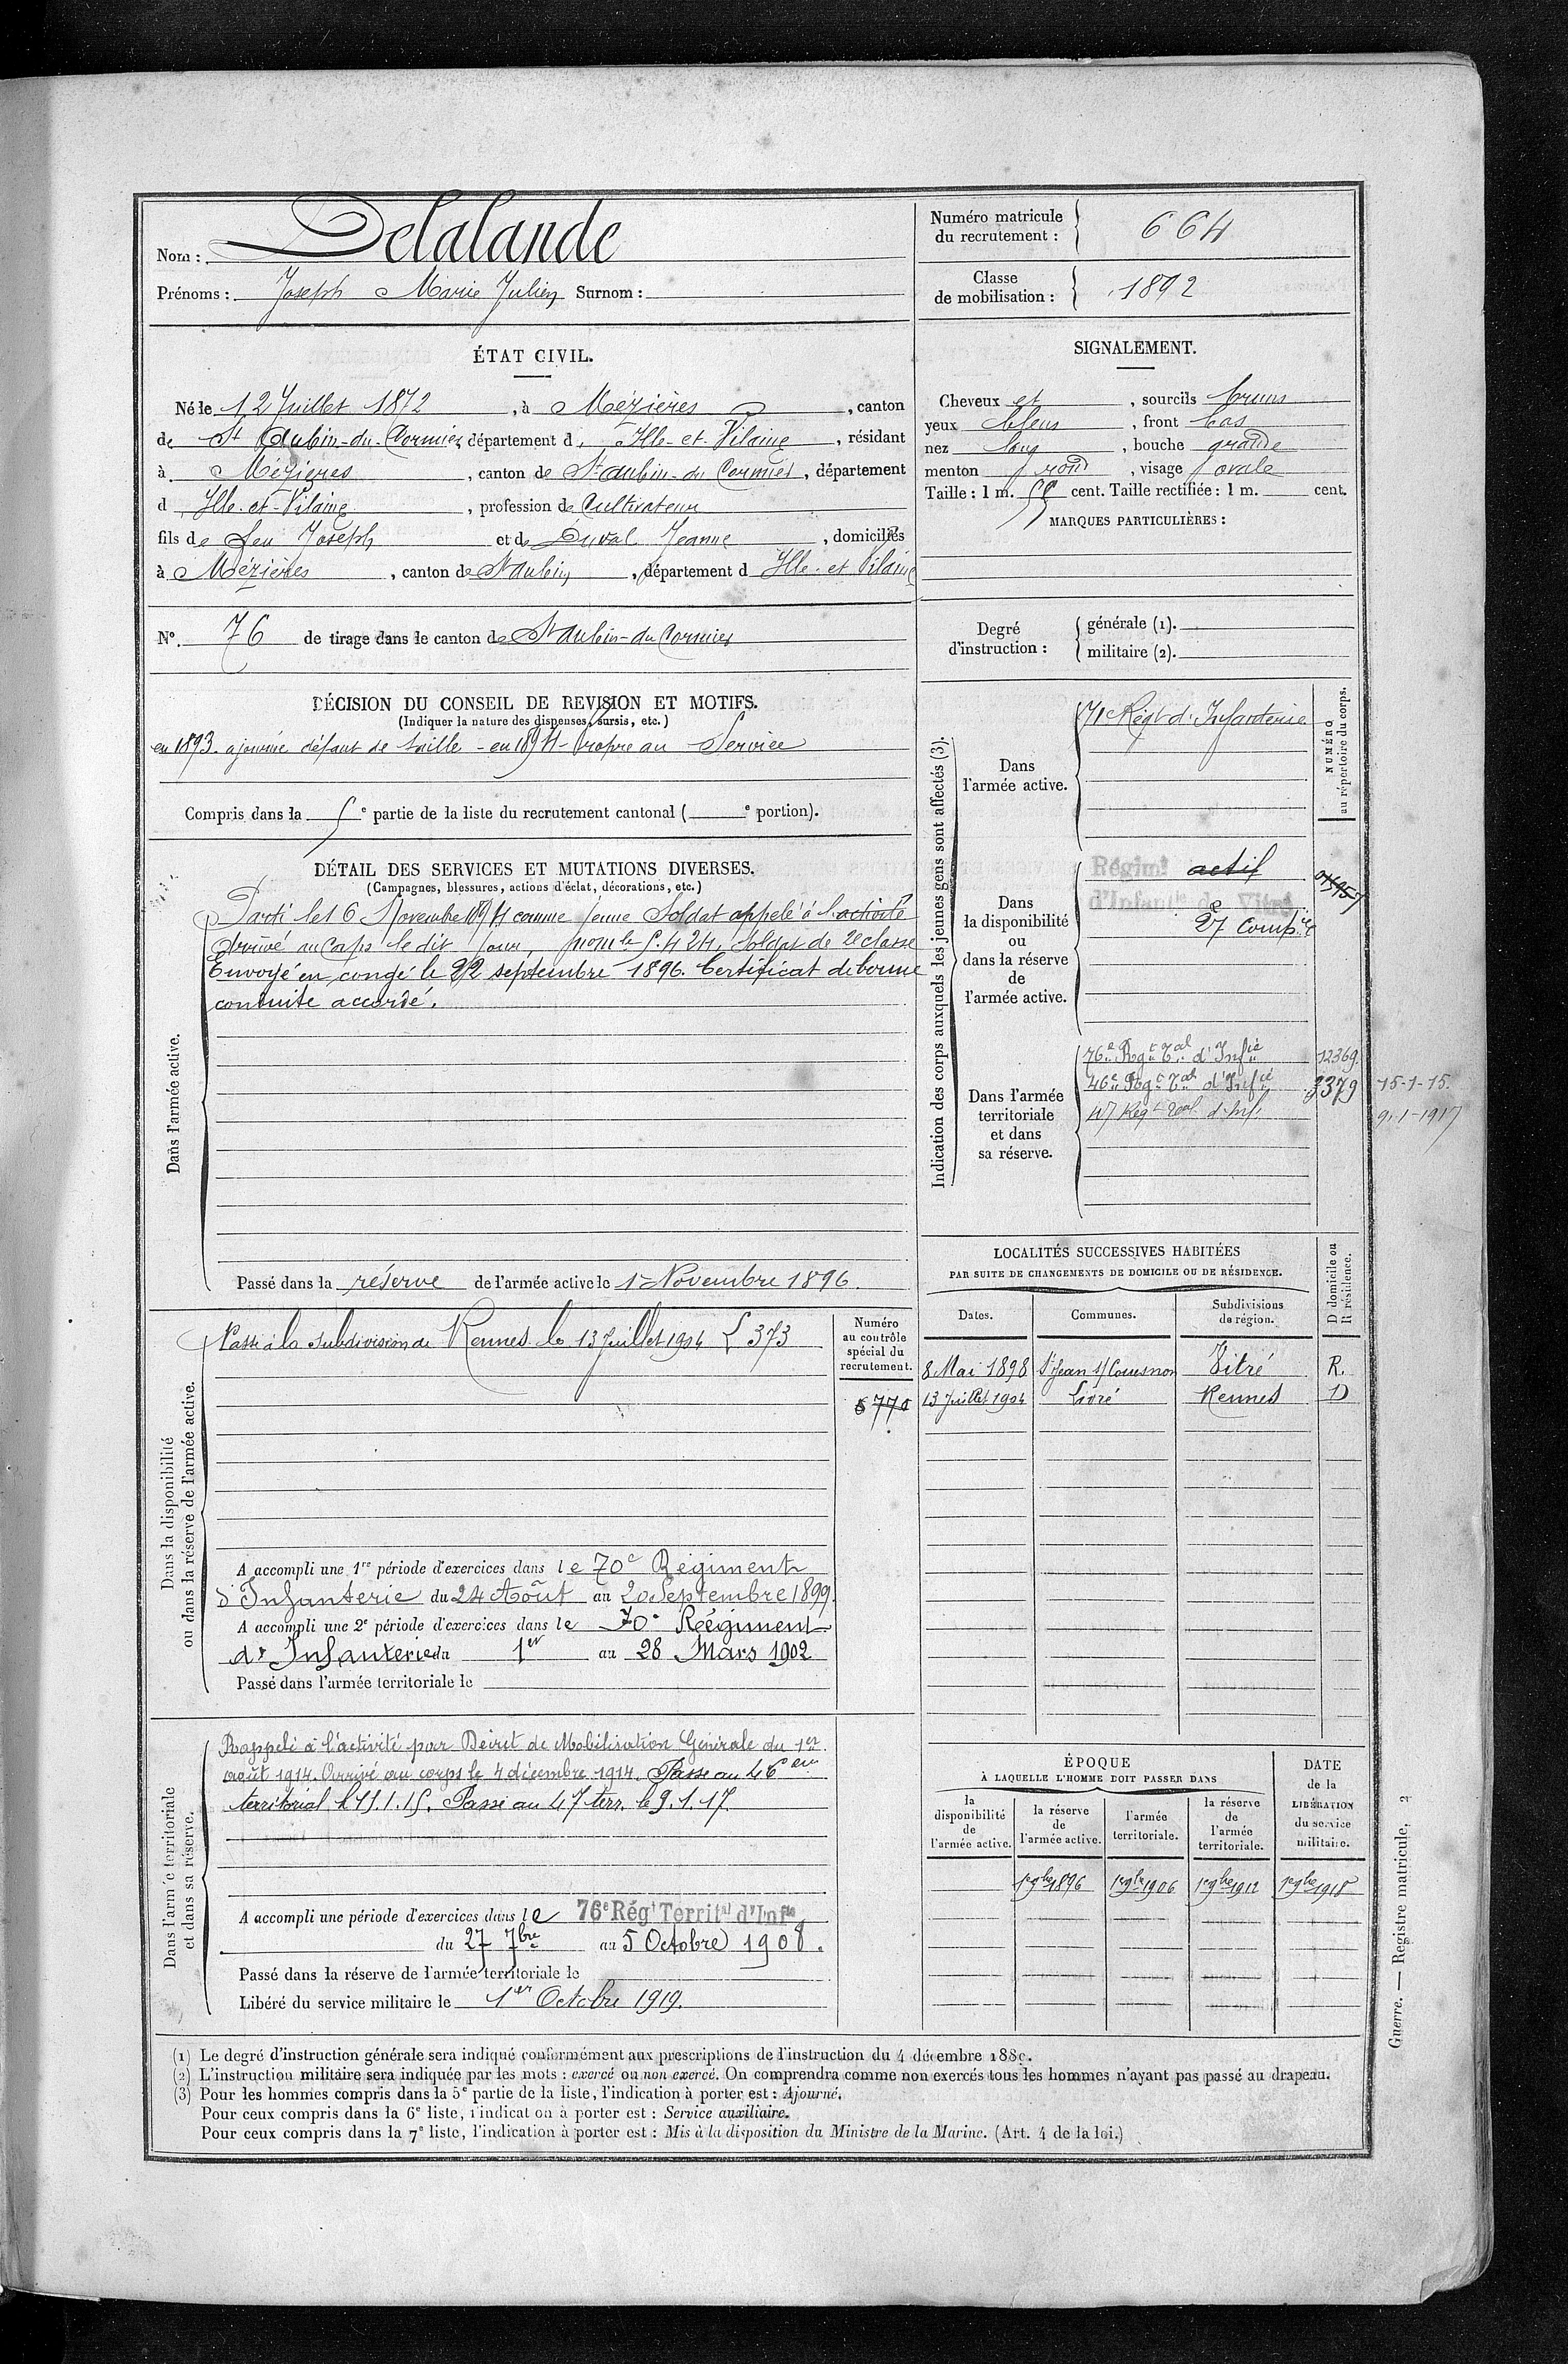 Nom : Delalande
Prénoms : Joseph Marie Julien Surnom :
Numéro matricule du recrutement : 664
Classe de mobilisation : 1892
ÉTAT CIVIL.
Né le 12 Juillet 1872, à Mézières, canton
de St Aubin-du-Cormier, département d Ille-et-Vilaine, résidant
à Mézières, canton de St aubin-du Cormier, département
d Ille-et-Vilaine, profession de Cultivateur
fils de feu Joseph et de Duval Jeanne, domiciliés
à Mézières, canton de St aubin, département d Ille-et Vilaine
N° 76 de tirage dans le canton de St aubin-du Cormier
SIGNALEMENT.
Cheveux et, sourcils bruns
yeux bleus, front bas
nez long, bouche grande
menton rond, visage ovale
Taille : 1 m. cent. Taille rectifiée : 1 m. cent.
MARQUES PARTICULIÈRES :
Degré d'instruction :
générale (1).
militaire (2).
DÉCISION DU CONSEIL DE REVISION ET MOTIFS.
(Indiquer la nature des dispenses, sursis, etc.)
en 1893. ajourné défaut de taille - en 1894 - Propre au Service
Compris dans la 5e partie de la liste du recrutement cantonal ( e portion).
DÉTAIL DES SERVICES ET MUTATIONS DIVERSES.
(Campagnes, blessures, actions d'éclat, décorations, etc.)
Dans l'armée active.
Parti le 16 Novembre 1894 comme jeune Soldat appelé à l'activité
Arrivé au Corps le dit jour, n° mle 5.424, soldat de 2e classe
Envoyé en congé le 22 septembre 1896. Certificat de bonne
conduite accordé.
Passé dans la réserve de l'armée active le 1er Novembre 1896.
Indication des corps auxquels les jeunes gens sont affectés (3).
NUMÉRO au répertoire du corps.
Dans l'armée active.
71e Régt d'Infanterie
Dans la disponibilité ou dans la réserve de l'armée active.
Régimt actif
d'Infantie de Vitré
27e Compie
Dans l'armée territoriale et dans sa réserve.
76e Regt Tal d'Infie 12369
46e Regt Tal d'Infie 3379 15-1-15.
47 Regt Teal d'Inf. 9-1-1917
LOCALITÉS SUCCESSIVES HABITÉES
PAR SUITE DE CHANGEMENTS DE DOMICILE OU DE RÉSIDENCE.
Dates. Communes. Subdivisions de région. D domicile ou R résidence.
8 Mai 1898 St Jean s/ Couesnon Vitré R.
13 Juillet 1904 Livré Rennes D
Dans la disponibilité ou dans la réserve de l'armée active.
Numéro au contrôle spécial du recrutement.
Passé à la Subdivision de Rennes le 13 Juillet 1904 L 373
A accompli une 1re période d'exercices dans le 70e Régiment
d'Infanterie du 24 Août au 20 Septembre 1899.
A accompli une 2e période d'exercices dans le 70e Régiment
d'Infanterie du 1er au 28 Mars 1902
Passé dans l'armée territoriale le
Dans l'armée territoriale et dans sa réserve.
Rappelé à l'activité par Décret de Mobilisation Générale du 1er
août 1914. Arrivé au corps le 4 décembre 1914. Passé au 46eme
territorial le 15.1.15. Passé au 47 terr. le 9.1.17.
A accompli une période d'exercices dans le 76e Régt Territal d'Infie
du 27 7bre au 5 Octobre 1908.
Passé dans la réserve de l'armée territoriale le
Libéré du service militaire le 1er Octobre 1919.
ÉPOQUE
À LAQUELLE L'HOMME DOIT PASSER DANS
la disponibilité de l'armée active. la réserve de l'armée active. l'armée territoriale. la réserve de l'armée territoriale.
DATE de la LIBÉRATION du service militaire.
1er 9bre 1896 1er 9bre 1906 1er 9bre 1912 1er 9bre 1918
(1) Le degré d'instruction générale sera indiqué conformément aux prescriptions de l'instruction du 4 décembre 1889.
(2) L'instruction militaire sera indiquée par les mots : exercé ou non exercé. On comprendra comme non exercés tous les hommes n'ayant pas passé au drapeau.
(3) Pour les hommes compris dans la 5e partie de la liste, l'indication à porter est : Ajourné.
Pour ceux compris dans la 6e liste, l'indication à porter est : Service auxiliaire.
Pour ceux compris dans la 7e liste, l'indication à porter est : Mis à la disposition du Ministre de la Marine. (Art. 4 de la loi.)
Guerre. — Registre matricule. 2